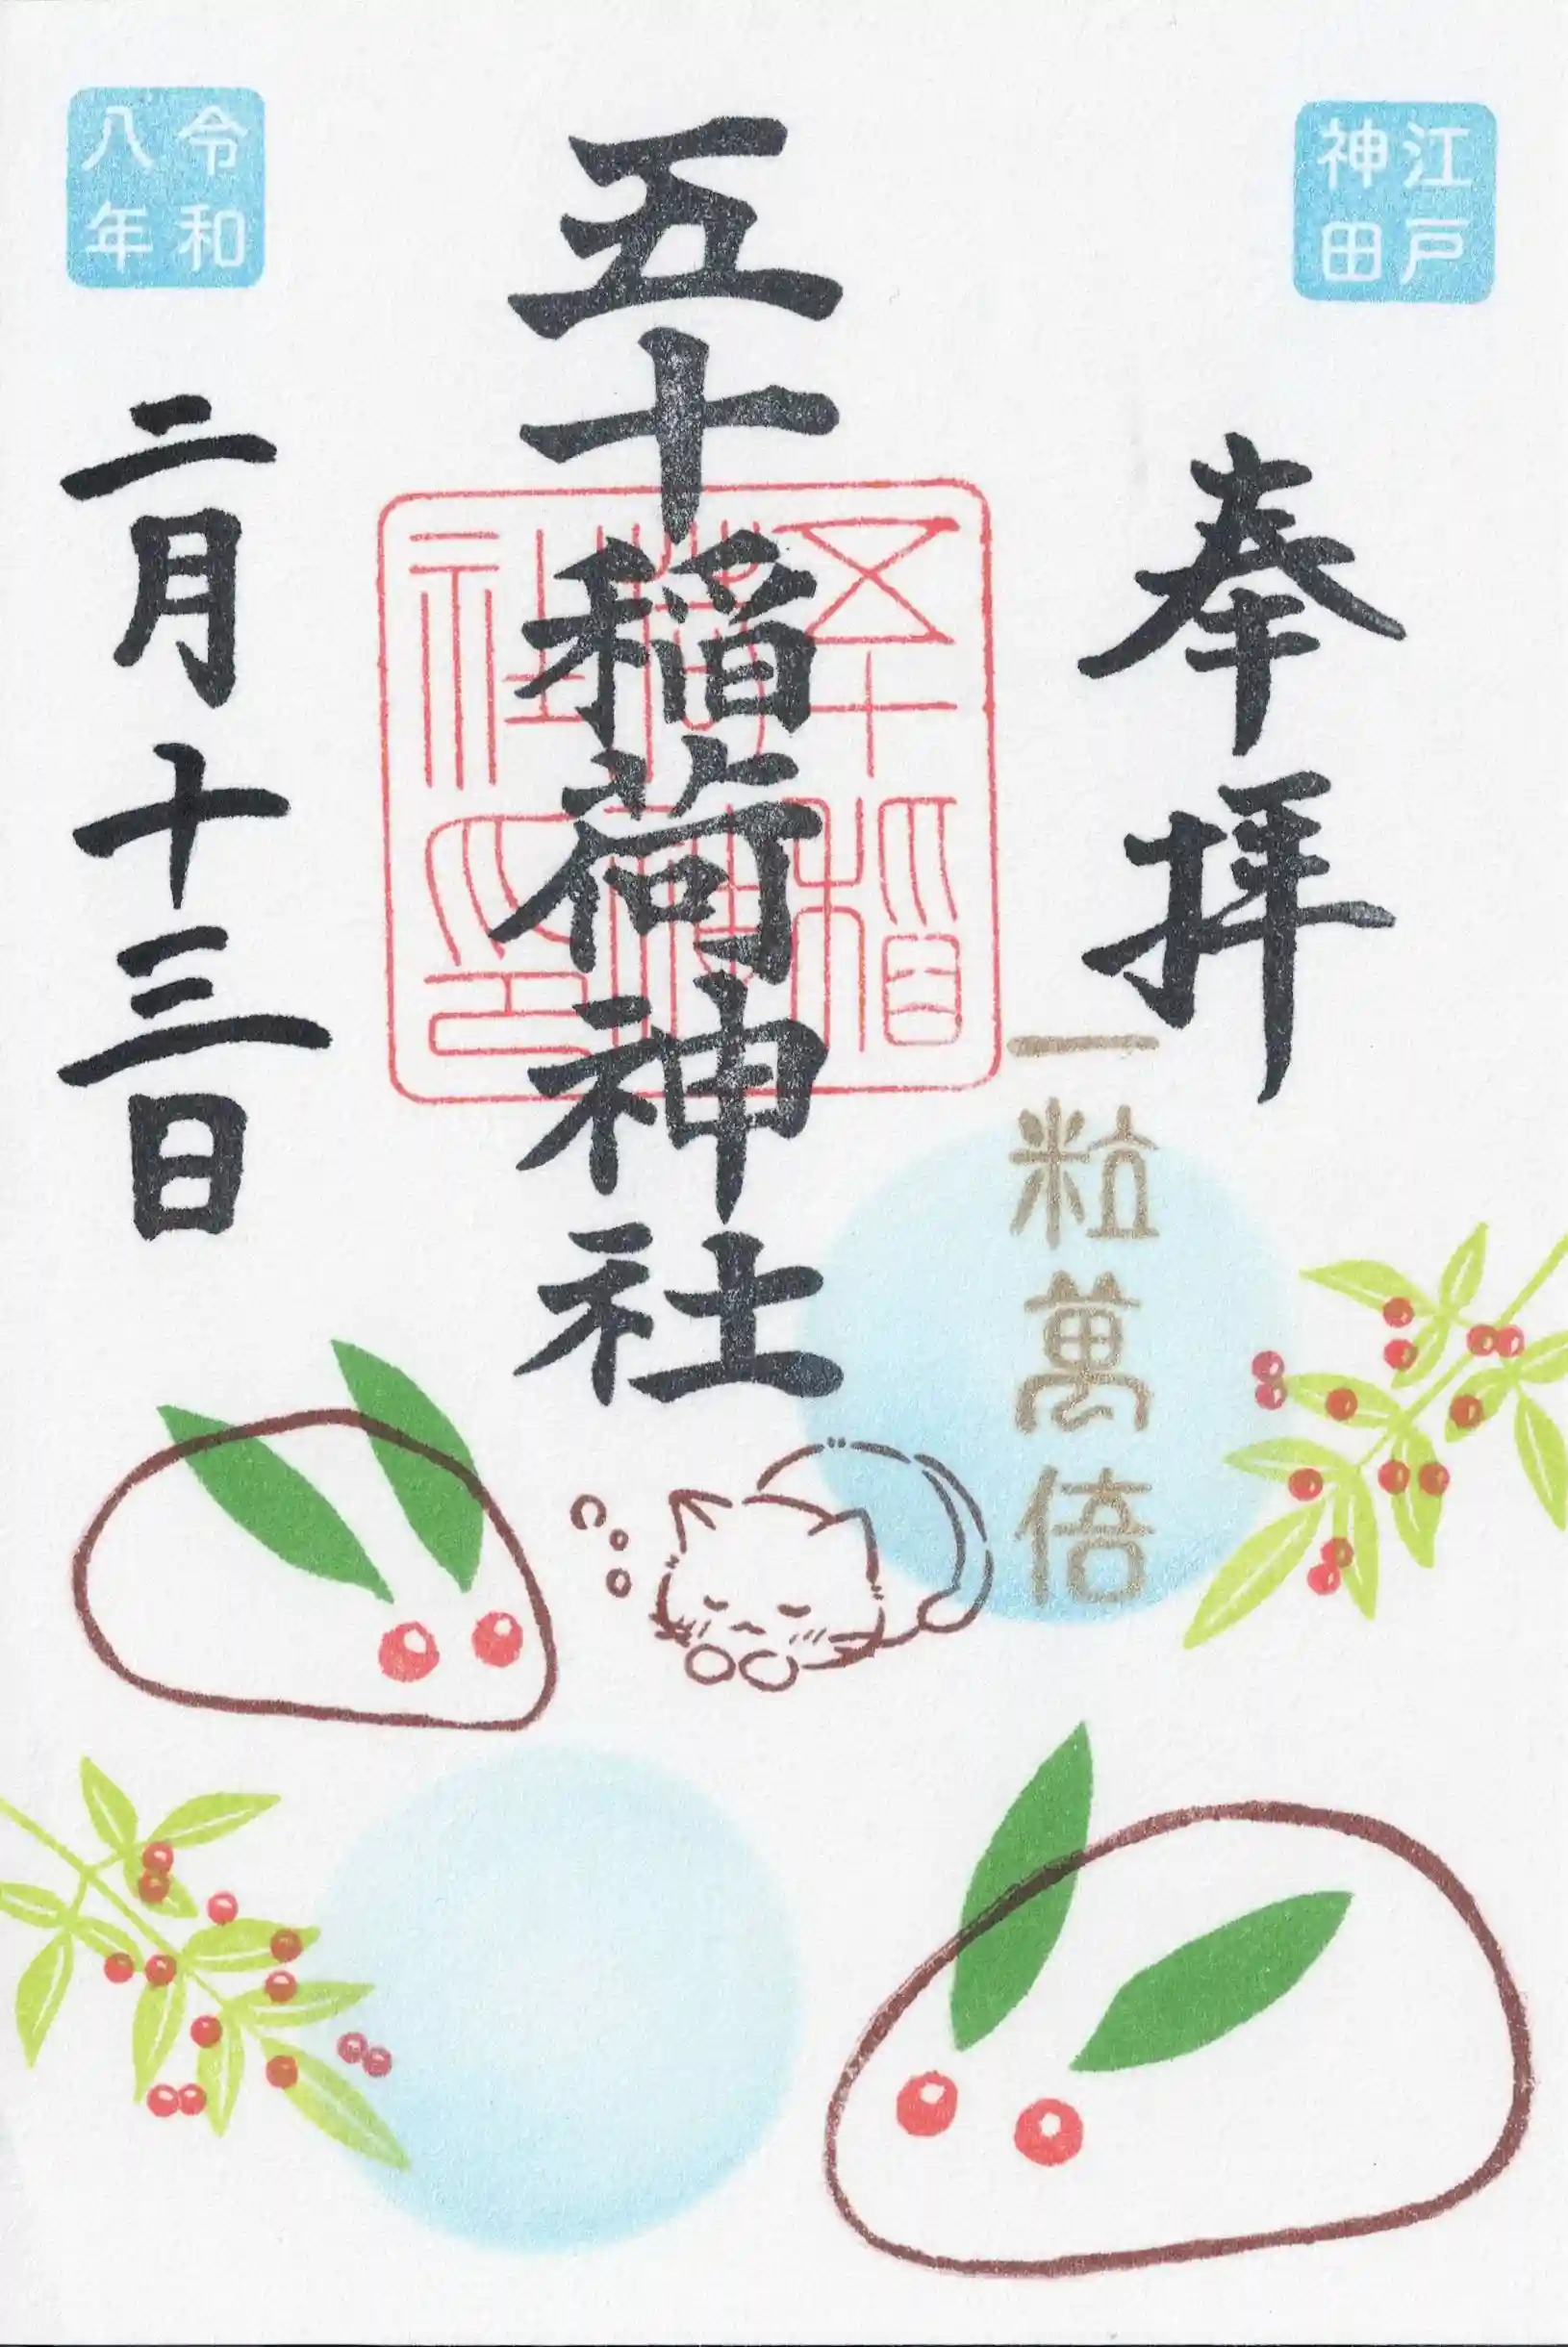 江戸
神田
奉拝
一粒萬倍
五十稲荷神社
五十稲
荷神
社印
令和
八年
二月十三日